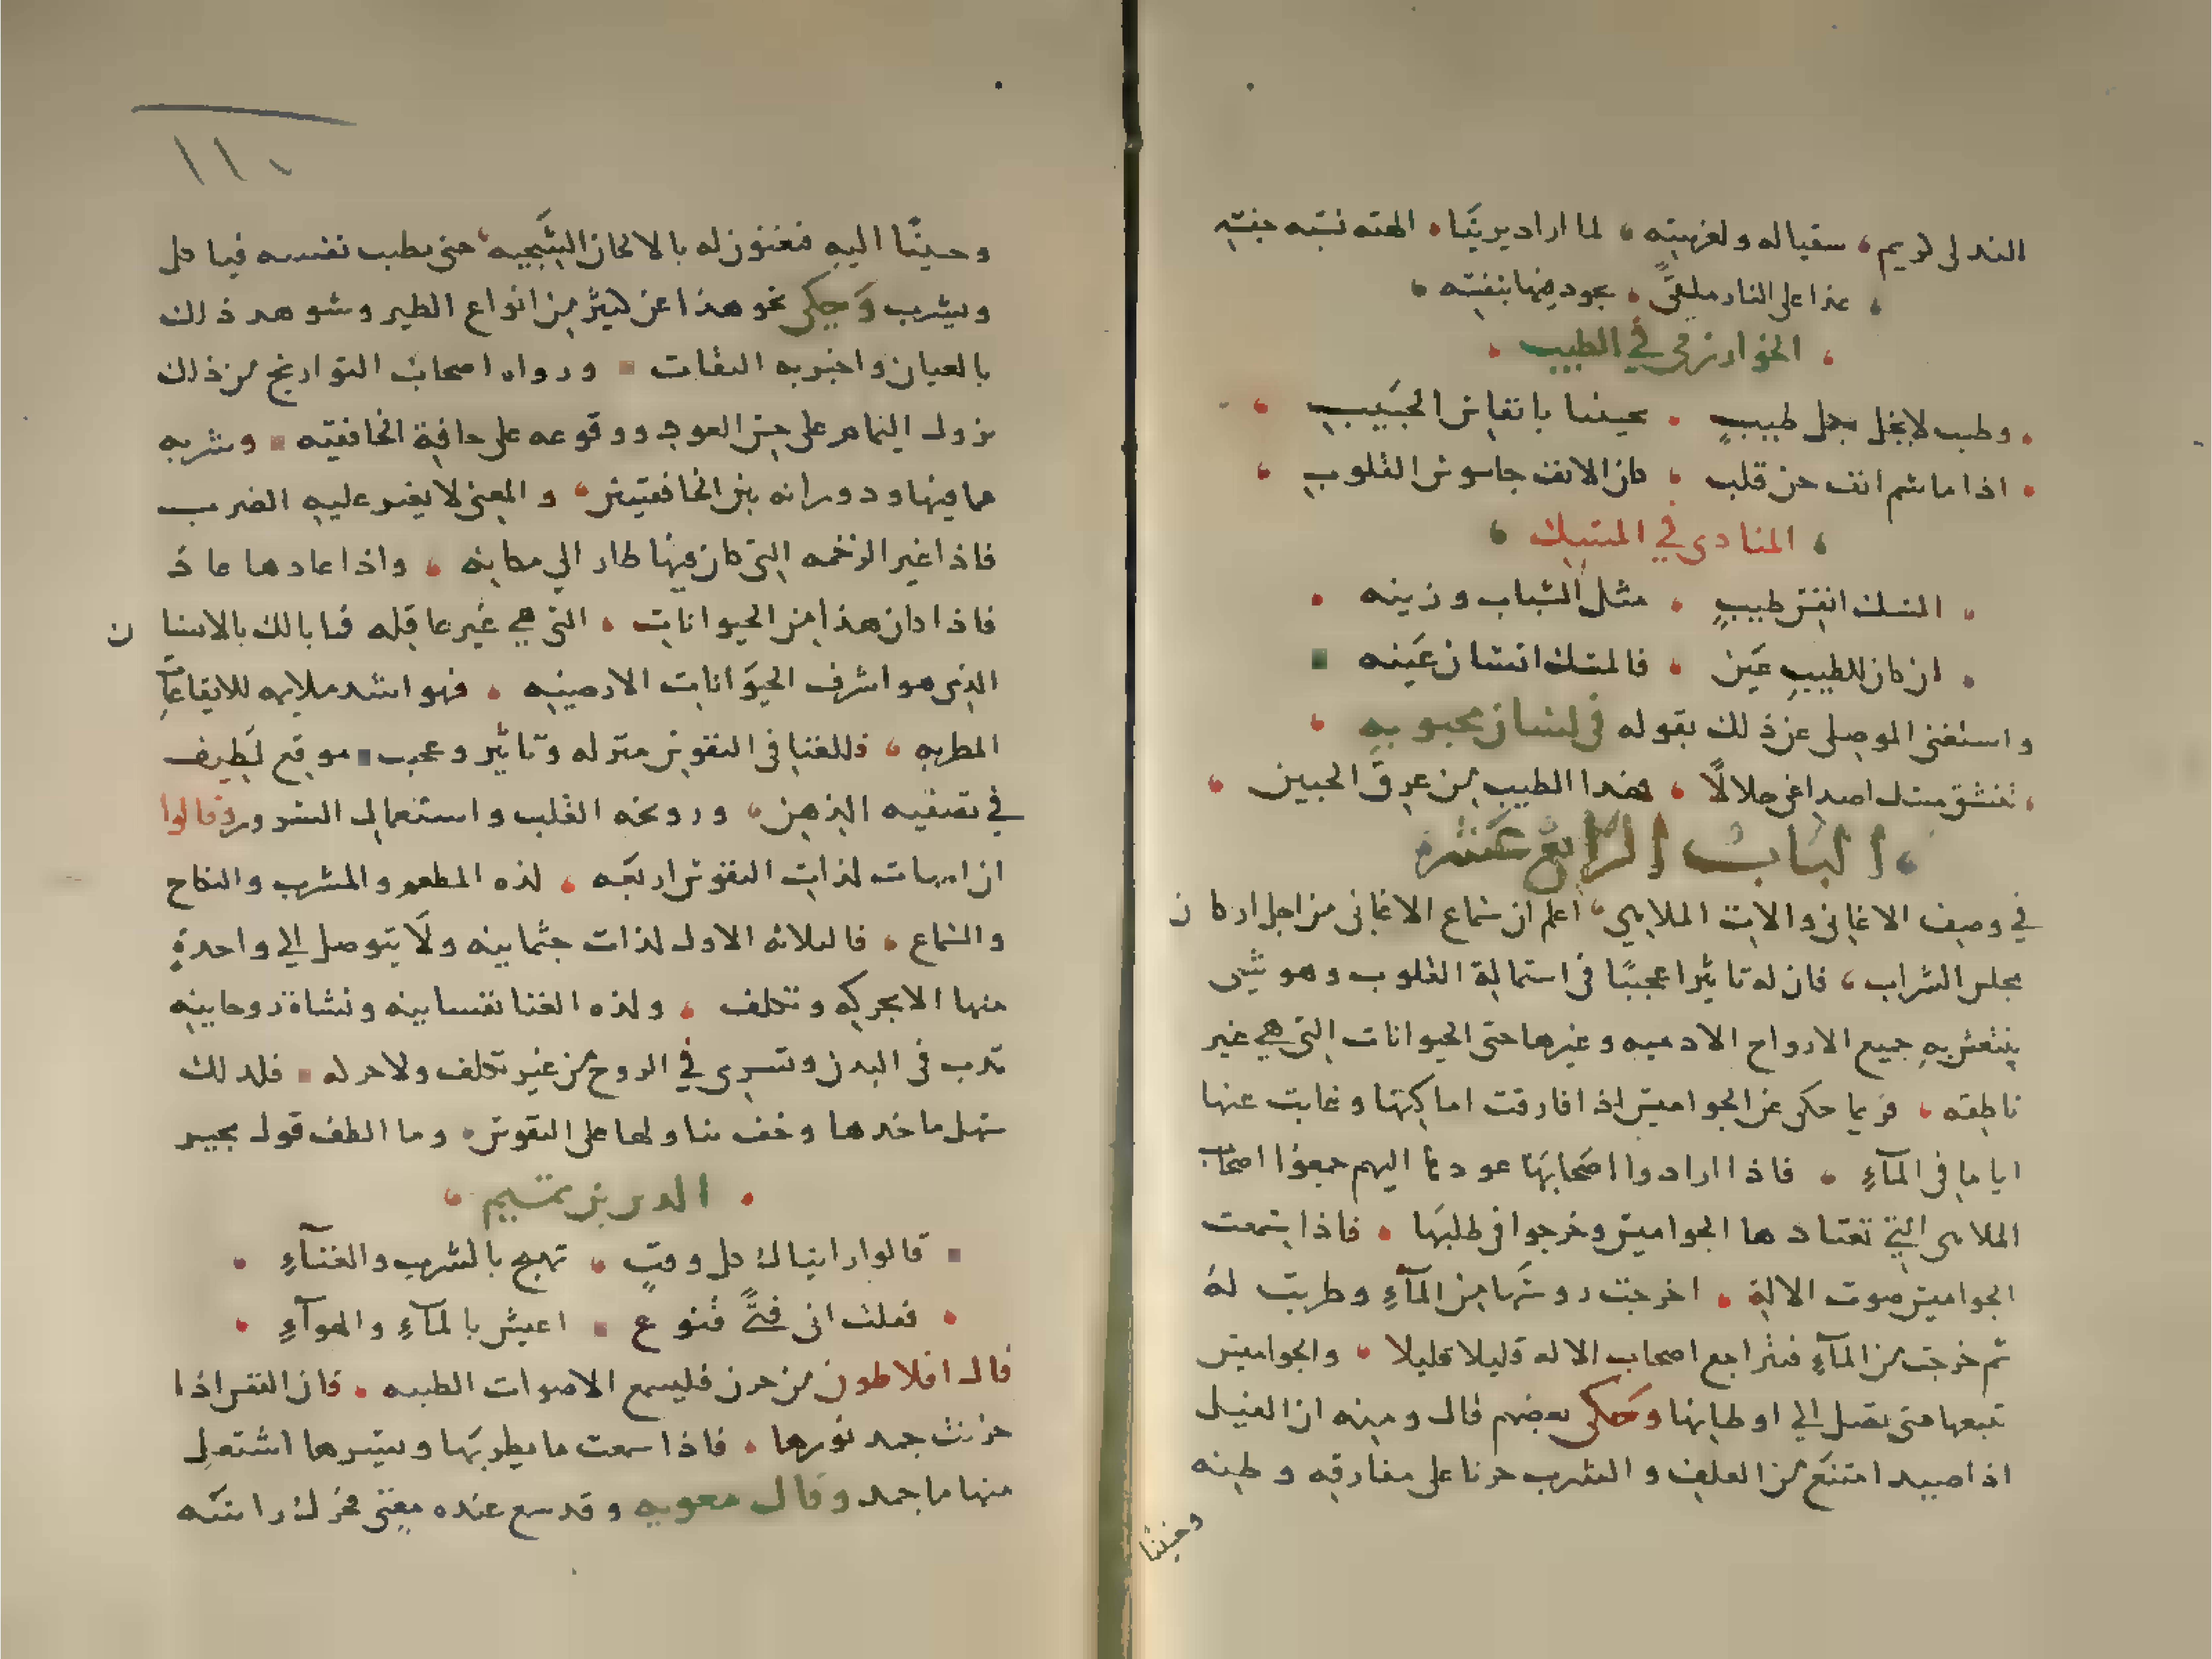 الند لي نديم سقياله ولغربته لما اراد يريّنا الهته نسبه جنته
غدا على النار ملقى يجود منها بنفسه
الخوارزمي في الطيب
وطيب لا يخل بكل طبيب يحيينا بانفاس الحبيب
اذا ما شم انف حن قلب كان الانف جاسوس القلوب
المنادي في المسك
المسك انفس طيبٍ مثل الشباب وزينه
ان كان للطيب عين فالمسك انسان عينه
واستغنى الموصلي عن ذلك بقوله في لسان محبوبه
تنشق مسك اصداغي حلالاً فهذا الطيب من عرق الجبين
الباب الرابع عشر
في وصف الاغاني والات الملاهي اعلم ان سماع الاغاني من اجل اركان
مجلس الشراب فان له تاثيرا عجيبا في استمالة القلوب وهو شي
ينتعش به جميع الارواح الادميه وغيرها حتى الحيوانات التي هي غير
ناطقه فربما حكى عن الجواميس اذا فارقت اماكنها وغابت عنها
اياما في المآءِ فاذا ارادوا اصحابها عودها اليهم جمعوا اصحاب
الملاهي التي تعتادها الجواميس وخرجوا في طلبها فاذا سمعت
الجواميس صوت الالة اخرجت روسها من المآءِ وطربت له
ثم خرجت من المآءِ فيتراجع اصحاب الاله قليلا قليلا والجواميس
تتبعها حتى تصل الى اوطانها وحكى بعضهم قال ومنه ان الفيل
اذا صيد امتنع من العلف والشرب حزنا على مفارقه وطنه
وحنينا
١١٠
وحينًا اليه فيغنون له بالالحان الشجيه حتى يطب نفسه فياكل
ويشرب وحكى نحو هذا عن كثير من انواع الطير وشوهد ذلك
بالعيان واخبر به الثقات ورواه اصحاب التواريخ من ذلك
نزول اليمام على جس العود ووقوعه على حافة الخافقيه وشربه
مما فيها ودورانه بين الخافقيتين والمغني لا يغير عليه الضرب
فاذا غير الزخمه التي كان فيها طار الي مكانه واذا عادها عاد
فاذا كان هذا من الحيوانات التي هي غير عاقله فما بالك بالانسان
الذي هو اشرف الحيوانات الارضيه فهو اشد ملايمه للايقاعات
المطربه فللغنا في النفوس منزله وتاثير وعجب موقع لطيف
في تصفيه الذهن وروحه القلب واستعمال السرور وقالوا
ان امهات لذات النفوس اربعه لذه المطعم والمشرب والنكاح
والسماع فالثلاثه الاول لذات جثمانيه ولا يتوصل الي واحدةٍ
منها الا بحركه وتكلف ولذه الغنا نفسانيه ونشاة روحانيه
تدب في البدن وتسري في الروح من غير تكلف ولا حركه فلذلك
سهل ماخذها وخف تناولها على النفوس وما الطف قول مجير
الدين بن تميم
قالوا رايناك كل وقتٍ تهيج بالشرب والغنآءِ
فقلت اني فتىً قنوع اعيش بالمآءِ والهوآءِ
قال افلاطون من حزن فليسمع الاصوات الطيبه فان النفس اذا
حزنت جمد نورها فاذا سمعت ما يطربها ويسرها اشتعل
منها ما جمد وقال معويه وقد سمع عنده مغني فحرك راسه